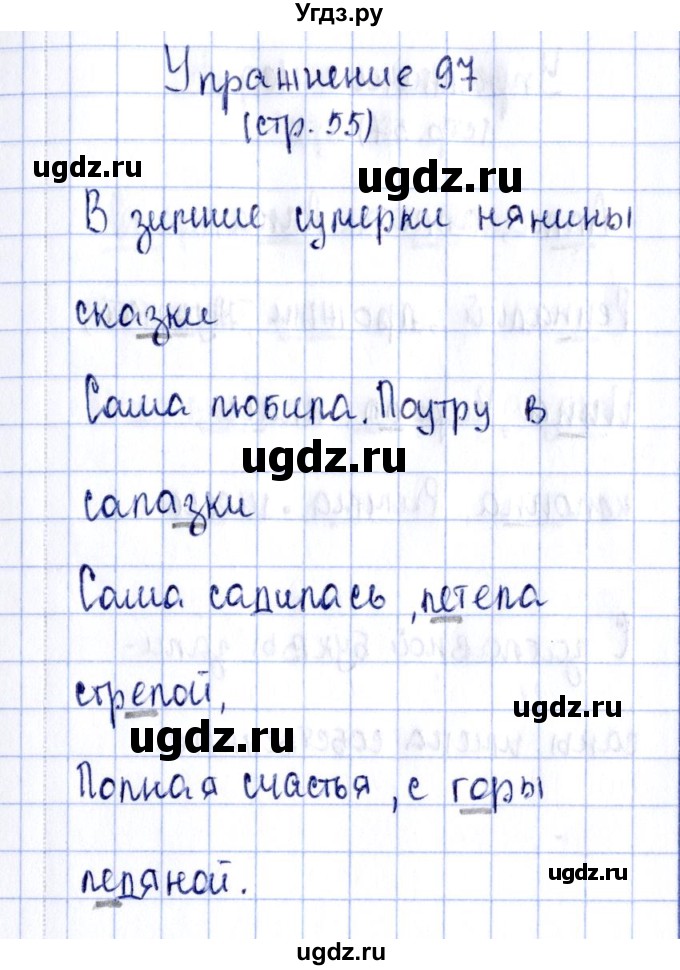 Угдз.ру
Упражнение 97
(стр. 55)
ugdz.ru
ugdz.ru
В зимние сумерки нянины
сказки
Саша любила. Поутру в
ugdz.ru
салазки
Саша садилась, летела
стрелой,
ugdz.ru
ugdz.ru
Полная счастья, с горы
ледяной.
ugdz.ru
ugdz.ru